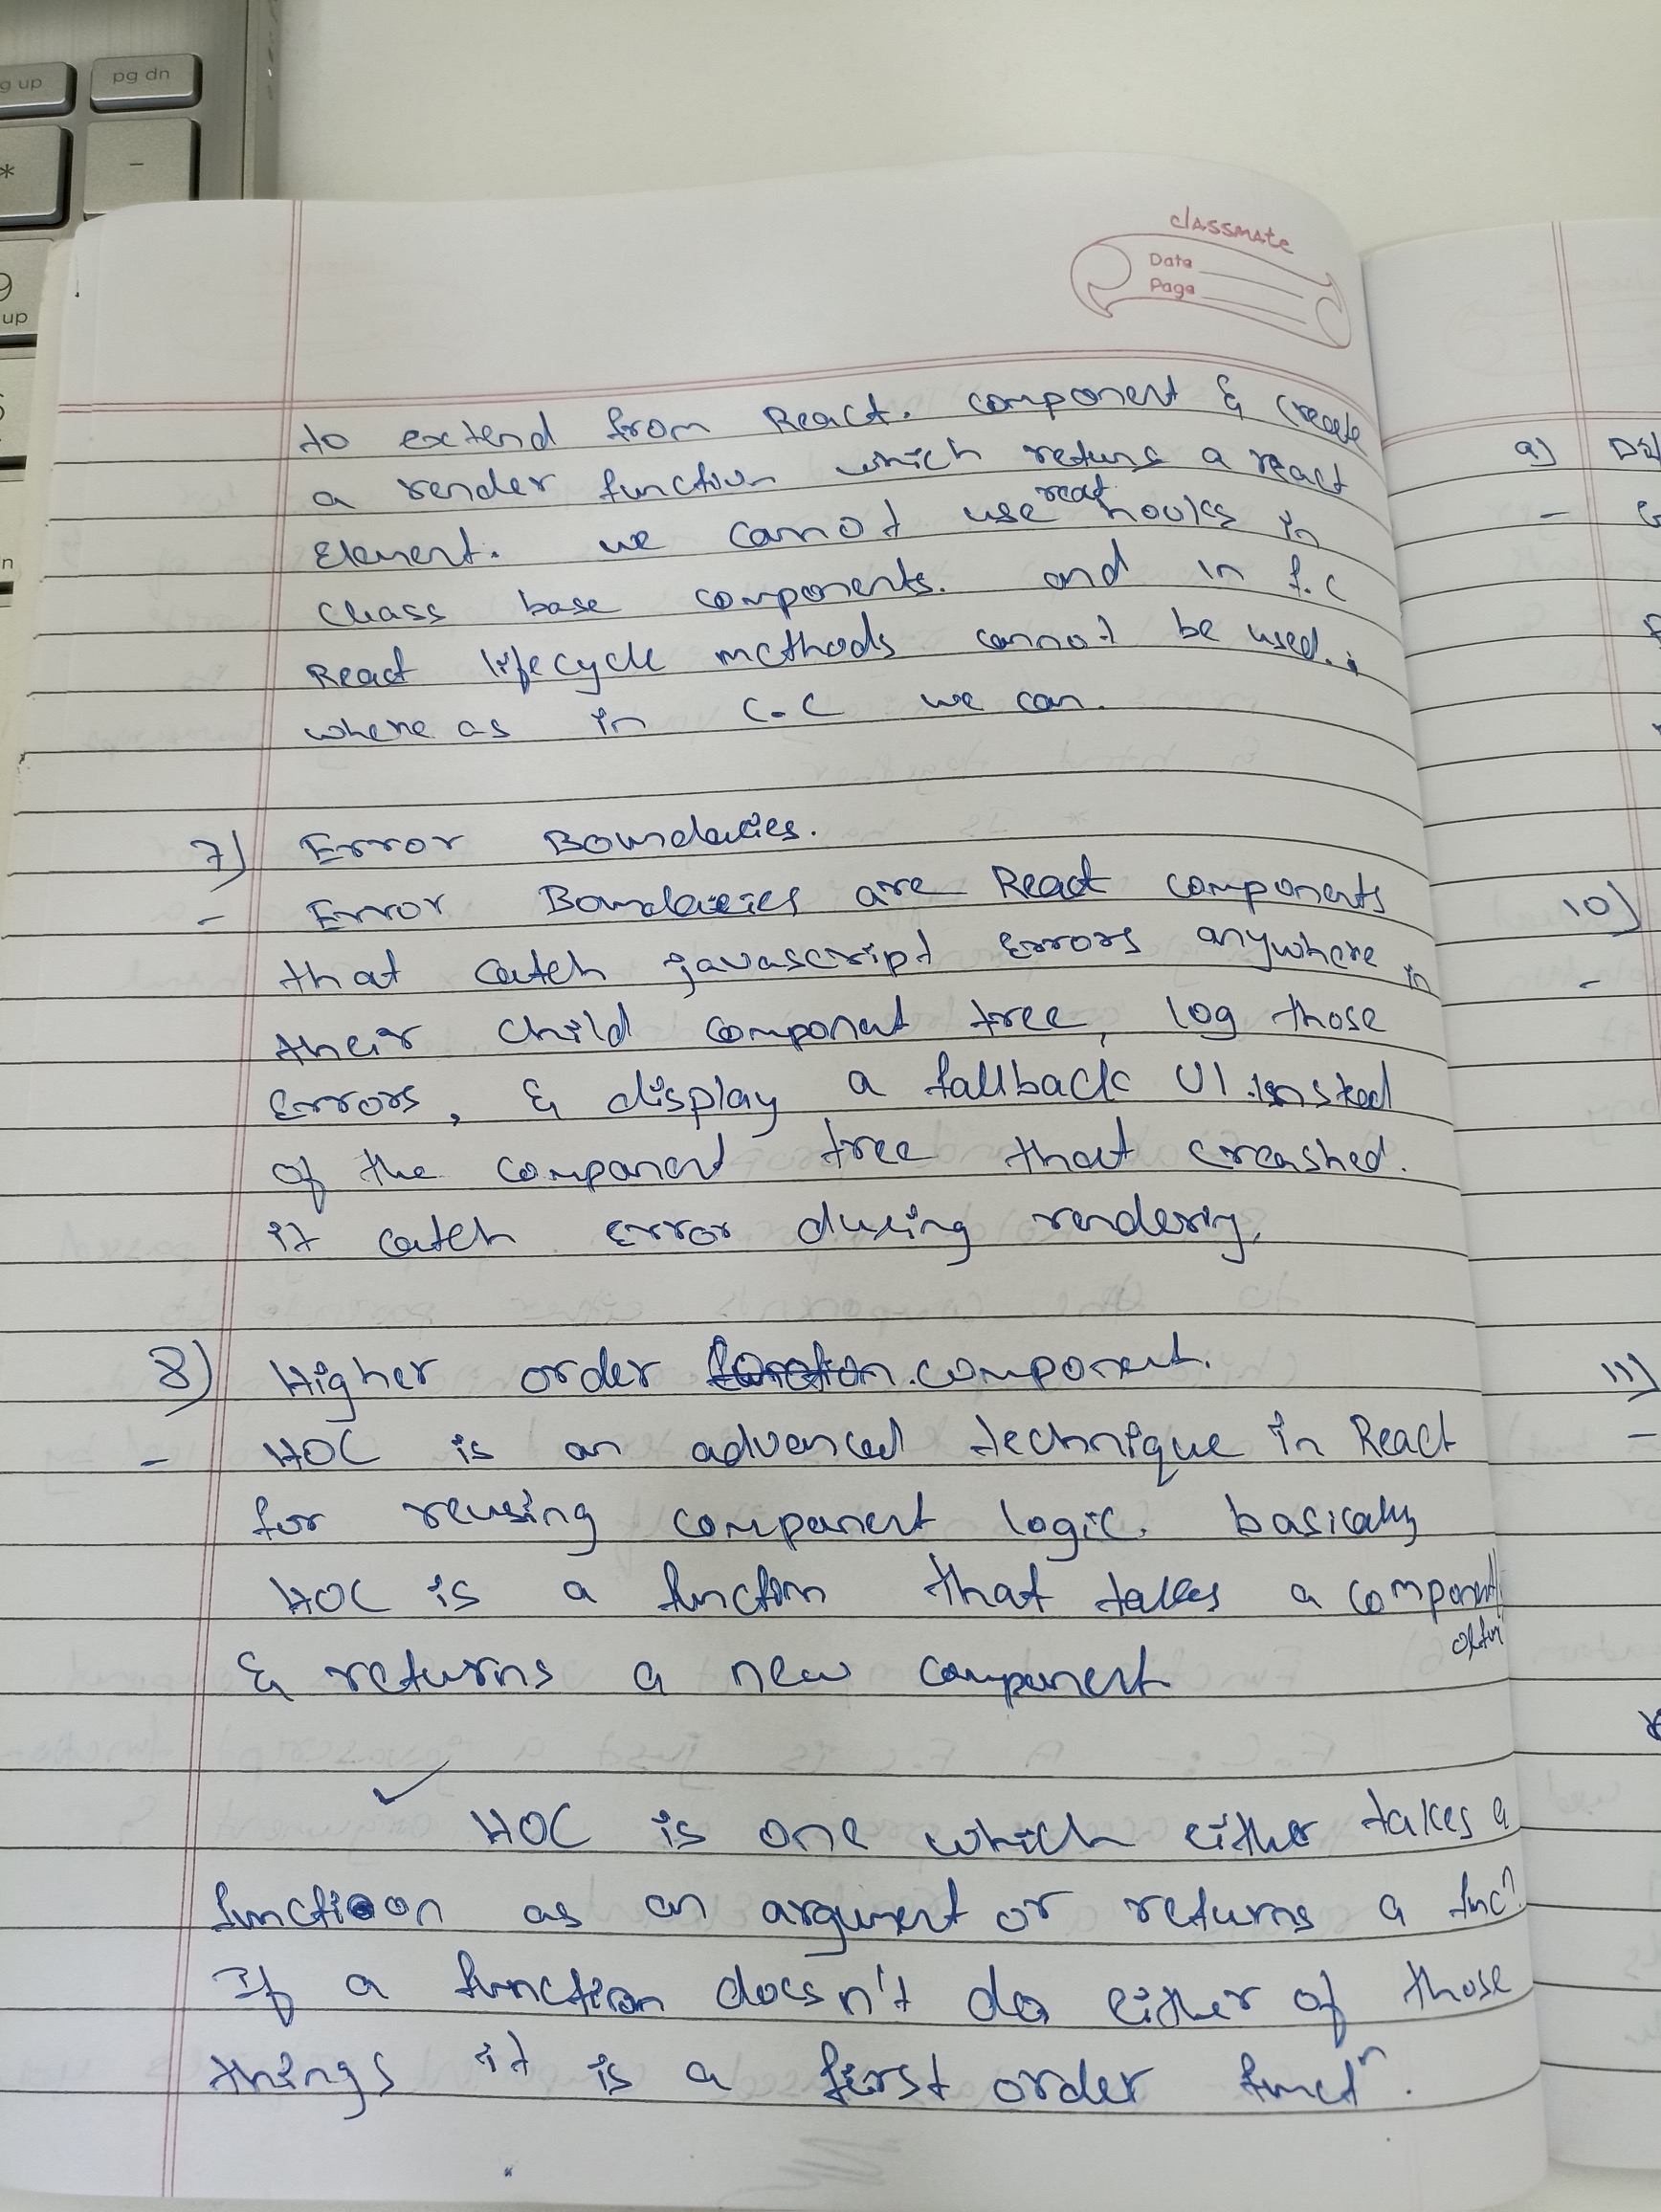 g up
pg dn
*
-
9
up
n
classmate
Date
Page
to extend from React. component & create
a render function which returns a react
Element. we cannot use react hooks in
Class base components. and in f.c
React lifecycle methods cannot be used.
where as in C.C we can.
7) Error Boundaries.
- Error Boundaries are React components
that catch javascript Errors anywhere in
their child component tree, log those
Errors, & display a fallback UI insted
of the component tree that creashed.
it catch Error during rendering.
8) Higher order function. component.
- HOC is an advanced technique in React
for reusing component logic. basically
HOC is a function that takes a component
& returns a new component
✓ HOC is one which either takes a
function as an argument or returns a funcⁿ
If a function doesn't do either of those
things it is a first order functⁿ.
9)
-
10)
-
11)
-